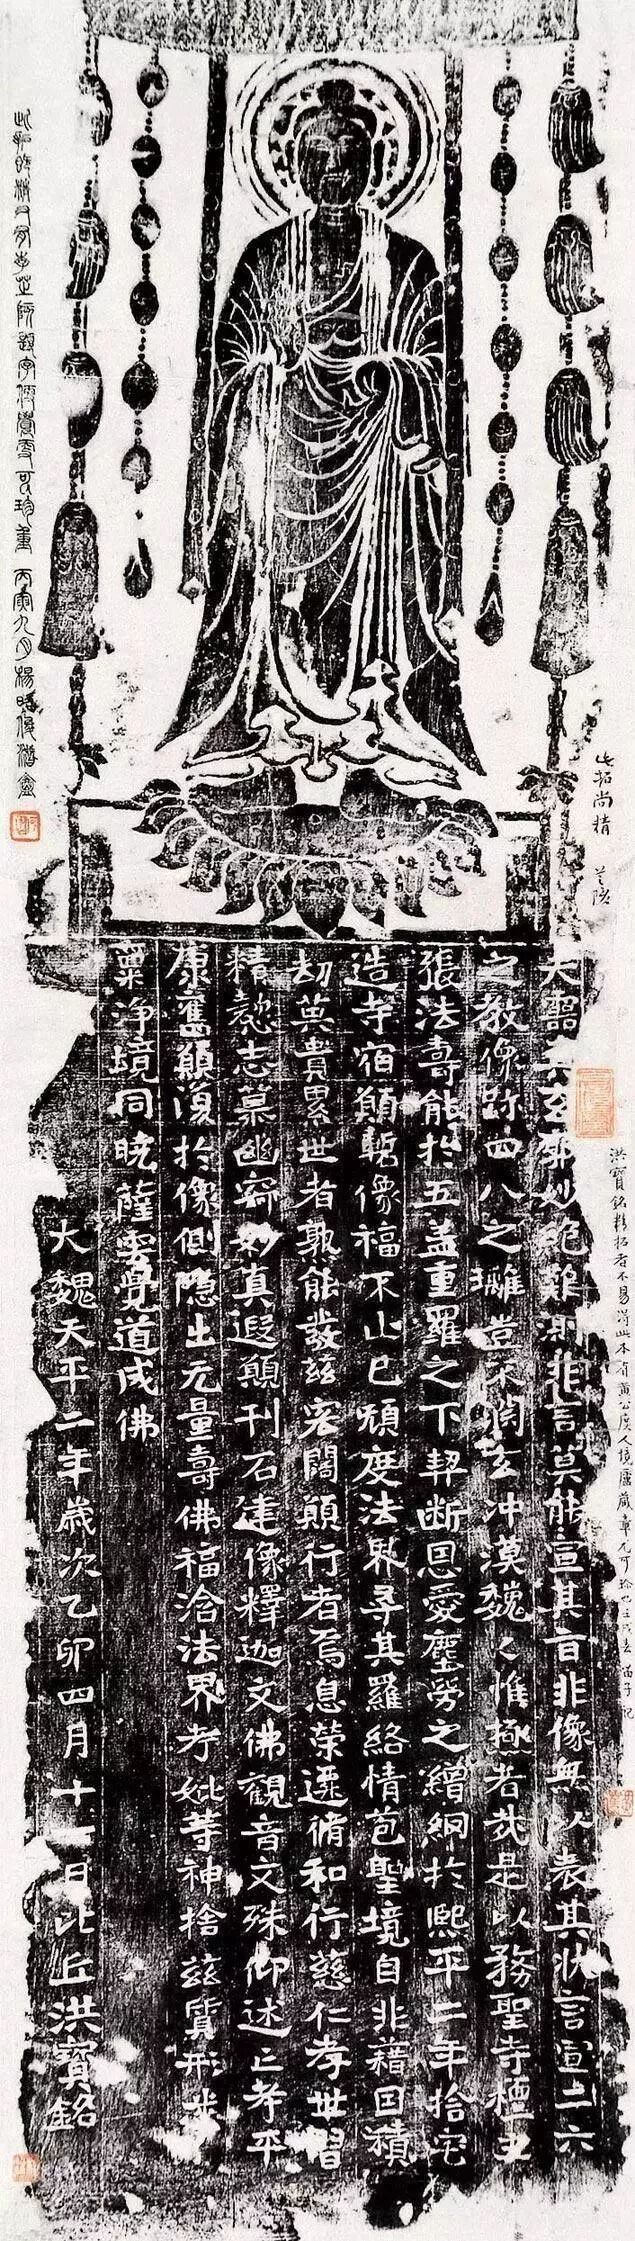 此拓尚精
洪寶銘精拓者不易得此本有黃公度人境廬藏章尤可珍也
夫靈玄廓妙絶難測非言莫能宣其旨非像無以表其狀言宣二六
之教像跡四八之璀豈不淵玄沖漠巍々惟極者哉是以務聖寺檀主
張法壽能於五蓋重羅之下契斷恩愛塵勞之繒網於熙平二年捨宅
造寺宿願暫像福不止已願度法界尋其羅絡情苞聖境自非藉因積
劫莫貴累世者孰能發茲宏闊願行者焉息榮遷脩和行慈仁孝世習
精懃志慕幽寂妙真遐願刊石建像釋迦文佛觀音文殊仰述亡考平
康舊願復於像側隱出无量壽佛福洽法界考妣等神捨茲質形悉
稟淨境同曉薩雲覺道成佛
大魏天平二年歲次乙卯四月十一日比丘洪寶銘
丙寅九月楊